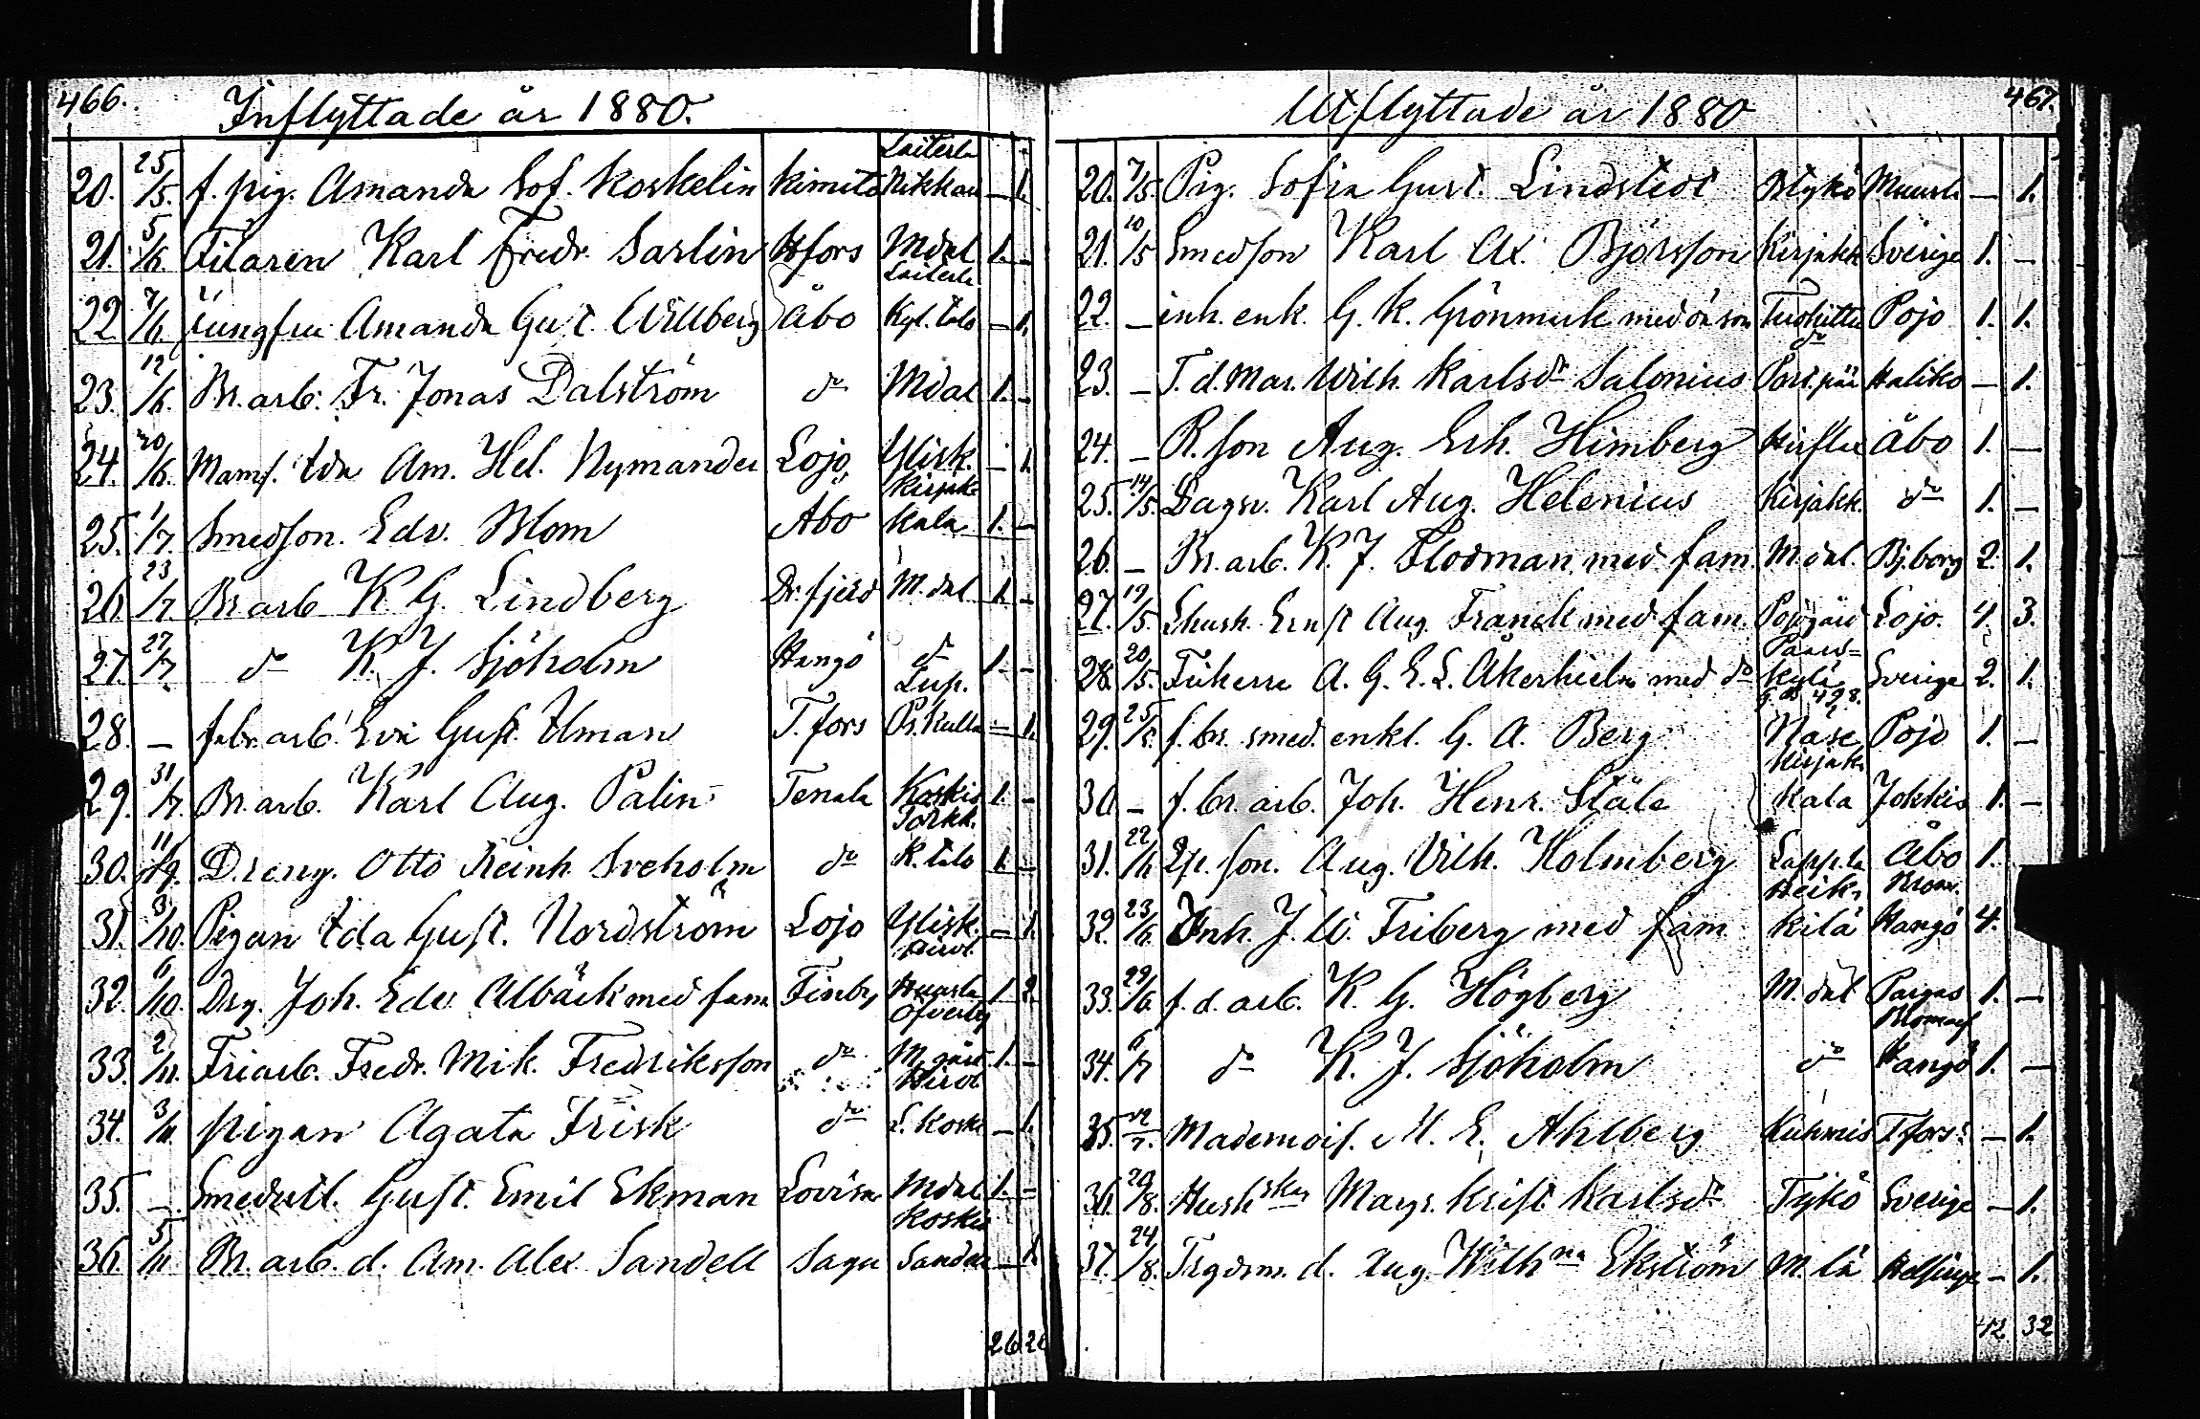 466.
Inflyttade år 1880.
20. 25/5. f. pig. Amanda Sof. Koskelin Kimito Laiterla Nikkari — 1.
21. 5/6. Filaren Karl Fredr. Sarlin Hfors Mdal 1. —
22. 7/6. Jungfru Amanda Gust. Willberg Åbo Laiterla Kyl. talo — 1.
23. 12/6. Br. arb. Fr. Jonas Dalström do Mdal 1. —
24. 20/6. Mams. Ida Am. Hel. Nymander Lojo Ylisk. — 1.
25. 1/7. Smedson. Edv. Blom Åbo Kirjak. kala 1. —
26. 23/7. Br arb K. G. Lindberg Dr. fjerd M. dal 1. —
27. 27/7 do K. J. Sjöholm Hangö do 1. —
28. — fabr. arb. Eva Gust. Uman T. fors Lup. Pr. kulla — 1.
29. 31/7. Br. arb. Karl Aug. Palin Tenala Koskis 1. —
30. 11/9. Dreng. Otto Reinh. Sveholm do Torkk. K. talo 1. —
31. 3/10. Pigan Ida Gust. Nordström Lojo Ylisk. — 1.
32. 6/10. Drg. Joh. Edv. Albäck med fam. Finby 1. 2.
33. 2/11. Friarb. Fredr. Mik. Fredriksson do M. gård 1. —
34. 3/11. pigan Agata Frisk do L. koski — 1.
35. — Smedutl. Gust. Emil Ekman Lovisa Mdal 1. —
36. 5/11 Br. arb. d. Am. Alex Sandell Sagu Koskis Sandell — 1.
26
467.
Utflyttade år 1880
20. 7/5. Pig. Sofia Gust. Lindstedt Muurla — 1.
21. 10/5 Smedson Karl Ax. Björsson Kirjakk Sverige 1. —
22. — inh. enk. G. K. Grönmark med oä son Tuohittu Pojo 1. 1.
23. — T. d. Mar. Wilh. Karlsdr Salonius Haliko — 1.
24. — R. son Aug. Erh. Himberg Åbo 1. —
25. 14/5. Dagsv. Karl Aug. Helenius Kirjakk. do 1. —
26. — Br. arb. K. J. Flodman med fam. M. dal. Bj. borg 2. 1.
27. 19/5. Ernst Aug. Franck med fam. Lojo. 4. 3.
28. 20/5. Friherre A. G. E. L. Åkerhielm med do kylä Sverige 2. 1.
29. 25/5. f. br. smed. enkl. G. A. Berg Näse Pojo 1. —
30. — f. br. arb. Joh. Henr. Ståle Kirjak. kala Jokkis 1. —
31. 22/6 Sp. son. Aug. Vilh. Holmberg Åbo 1.
32. 23/6. Inh. J. W. Friberg med fam kilä Hangö 4.
33. 29/6. f. d. arb. K. G. Högberg M. dal Pargas 1. —
34. 6/7 do K. J. Sjöholm do Hangö 1. —
35. 12/7. Mademois. M. E. Ahlberg Kuhmis T. fors — 1.
36. 20/8. Hush skan Margr. Krist. Karlsdr Tykö Sverige — 1.
37. 24/8. Trgdsm. d. Aug. Wilhna Ekström M. lä Helsinge — 1.
42 32